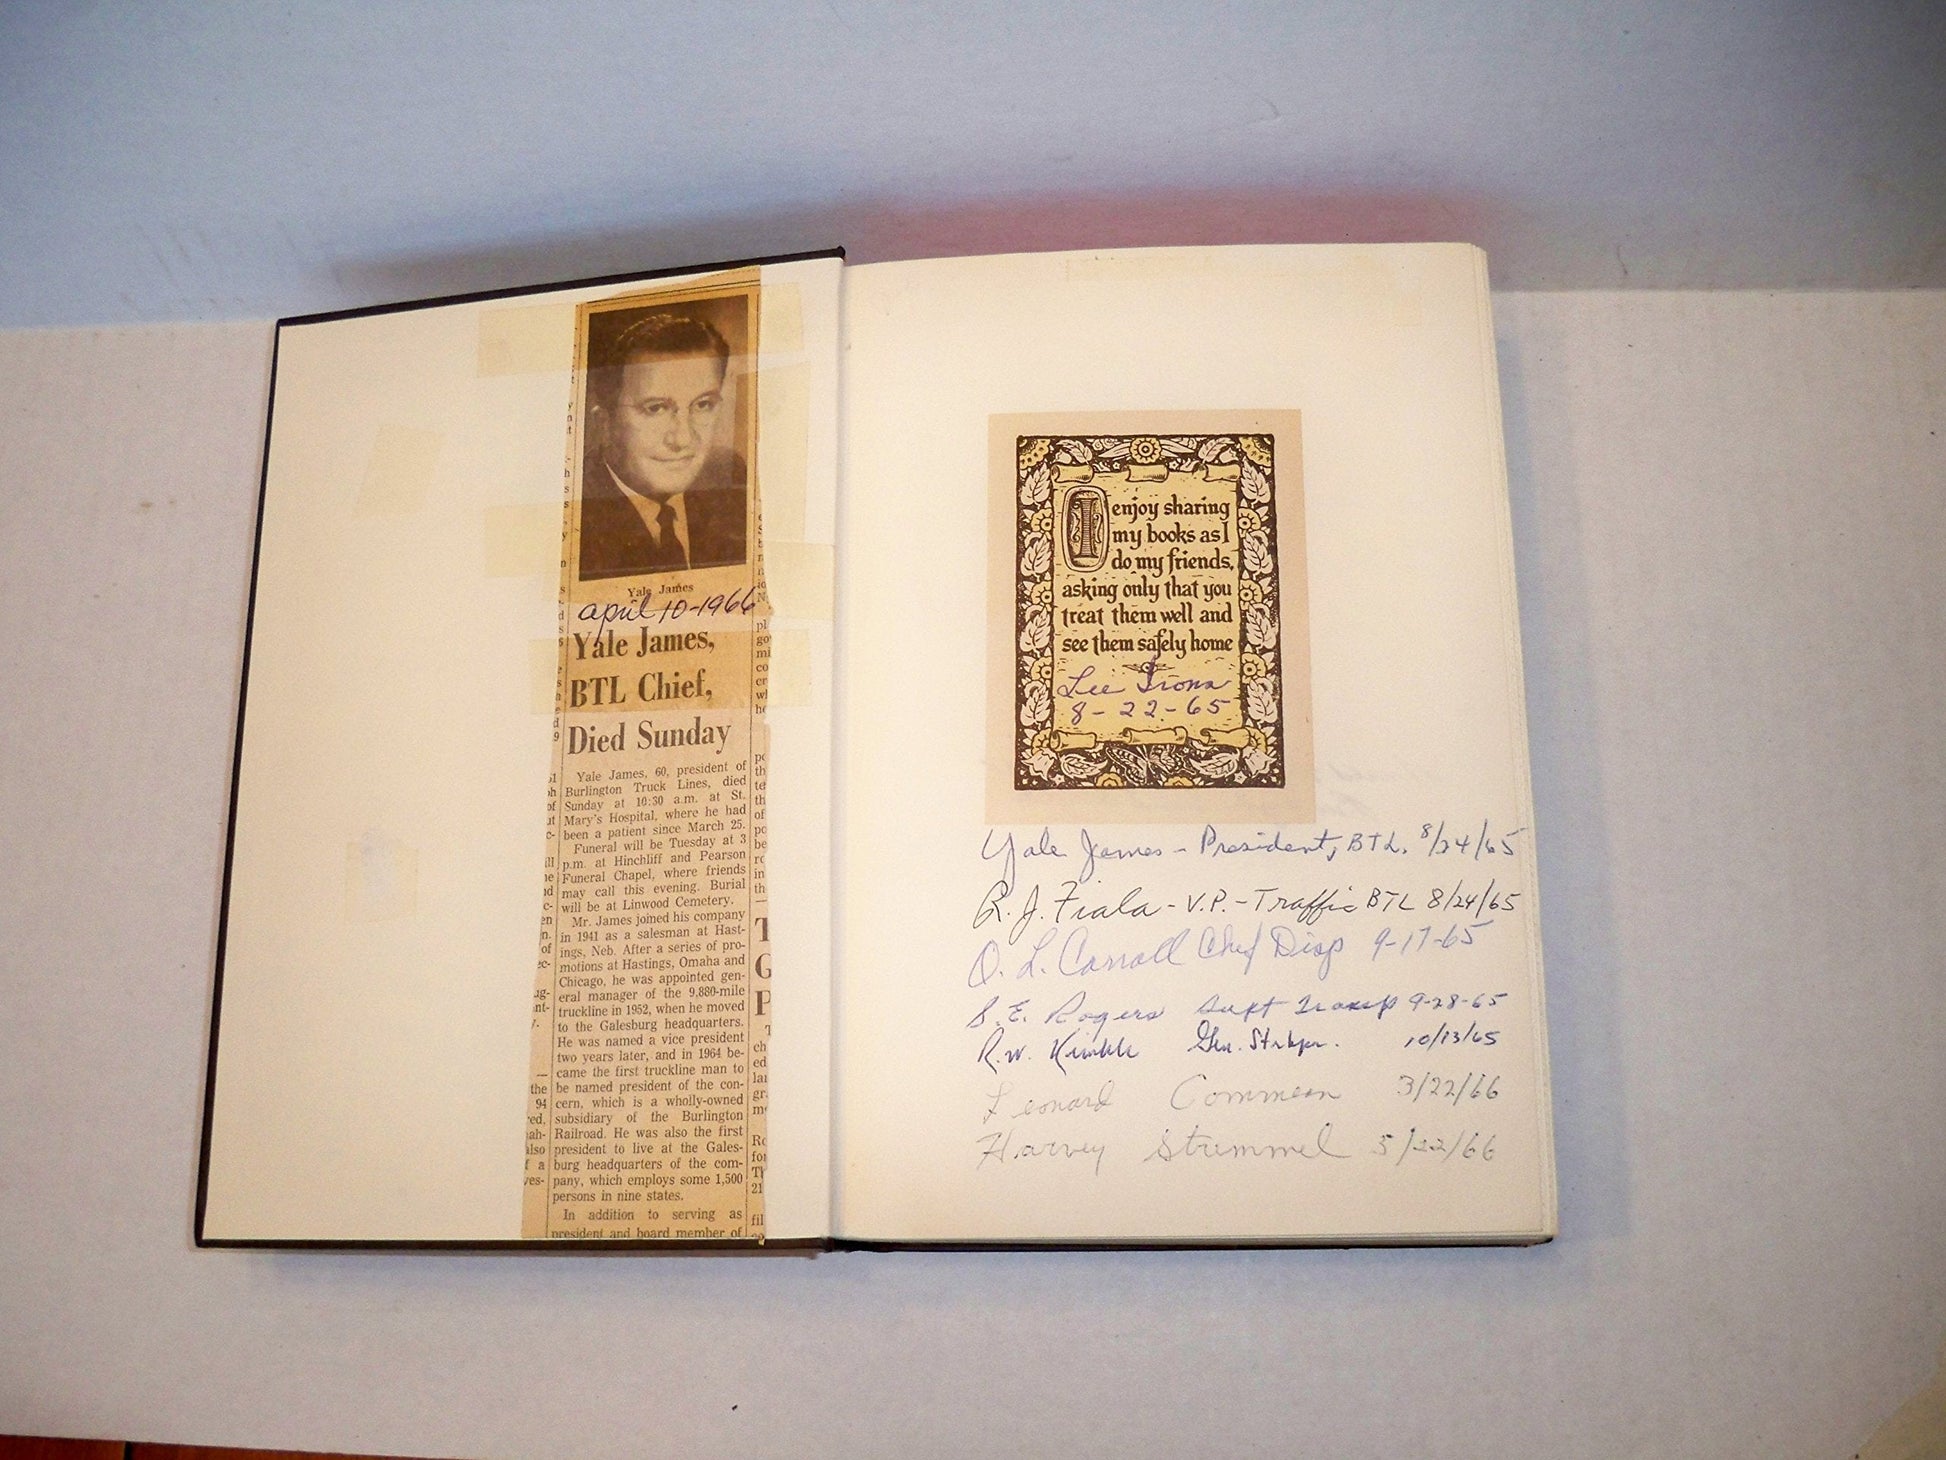 Yale James
april 10-1966
Yale James,
BTL Chief,
Died Sunday
Yale James, 60, president of
Burlington Truck Lines, died
Sunday at 10:30 a.m. at St.
Mary's Hospital, where he had
been a patient since March 25.
Funeral will be Tuesday at 3
p.m. at Hinchliff and Pearson
Funeral Chapel, where friends
may call this evening. Burial
will be at Linwood Cemetery.
Mr. James joined his company
in 1941 as a salesman at Hast-
ings, Neb. After a series of pro-
motions at Hastings, Omaha and
Chicago, he was appointed gen-
eral manager of the 9,880-mile
truckline in 1952, when he moved
to the Galesburg headquarters.
He was named a vice president
two years later, and in 1964 be-
came the first truckline man to
be named president of the con-
cern, which is a wholly-owned
subsidiary of the Burlington
Railroad. He was also the first
president to live at the Gales-
burg headquarters of the com-
pany, which employs some 1,500
persons in nine states.
In addition to serving as
president and board member of
I enjoy sharing
my books as I
do my friends,
asking only that you
treat them well and
see them safely home
Lee
8-22-65
Yale James - President, BTL. 8/24/65
R. J. Fiala - V.P. - Traffic BTL 8/24/65
O. L. Carroll Chef Disp 9-17-65
S. E. Rogers Supt Transp 9-28-65
R.W. Kimble Gen. 10/13/65
Leonard Commean 3/22/66
Harvey Strummel 5/22/66